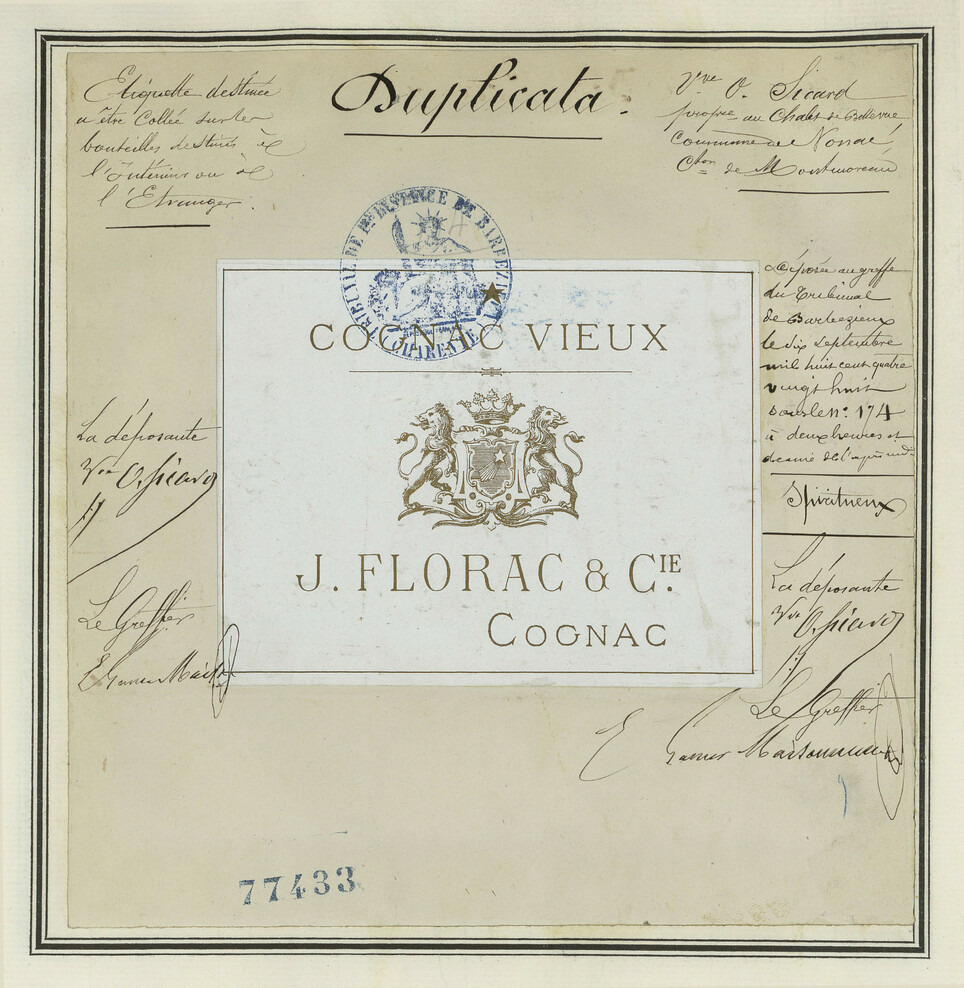 Duplicata.
Etiquette destinée
a être Collée sur les
bouteilles destinées à
l'Intérieur ou à
l'Etranger.
Vve O. Sicard
propre au Chalet de Bellevue
Commune de Nonac
Cton de Montmoreau
TRIBUNAL DE 1re INSTANCE DE BARBEZIEUX
CHARENTE
COGNAC VIEUX
J. FLORAC & CIE.
COGNAC
Déposée au greffe
du Tribunal
de Barbezieux
le dix septembre
mil huit cent quatre
vingt huit
sous le no. 174
à deux heures et
demie de l'après midi
Spiritueux
La déposante
Vve O. Sicard
Le Greffier
La déposante
Vve O. Sicard
Le Greffier
77433